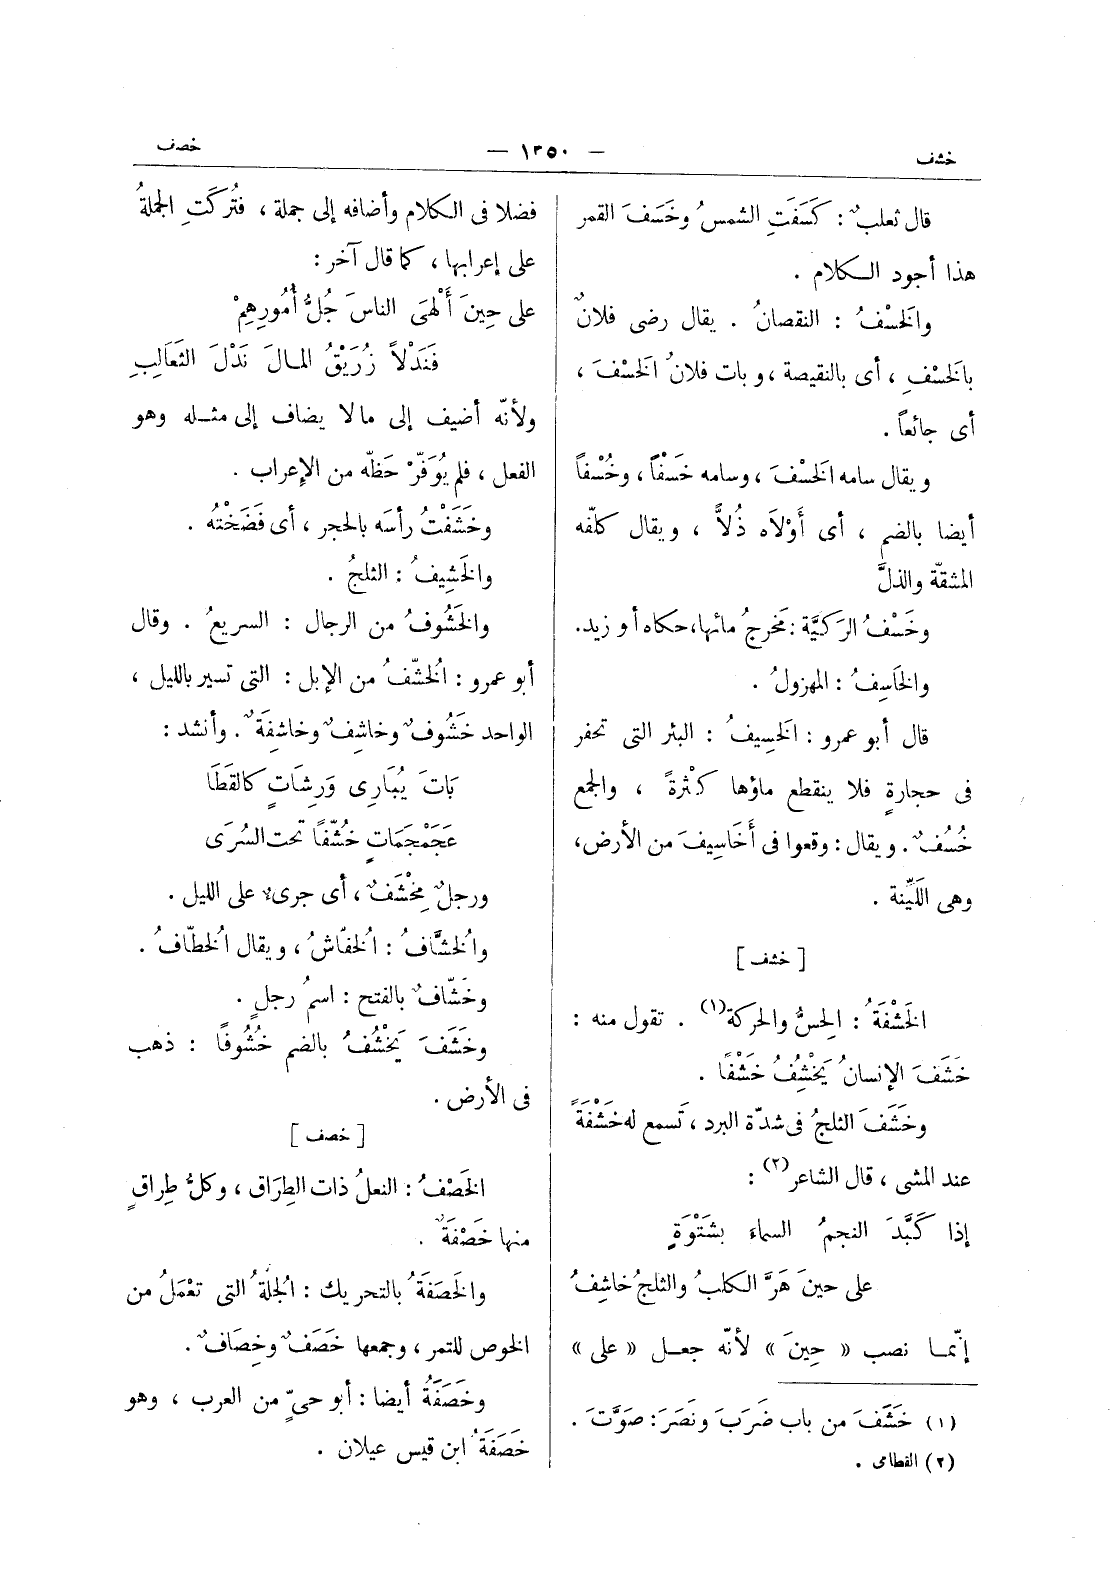 خشف
— ١٣٥٠ —
خصف
قال ثعلبٌ : كَسَفَتِ الشمسُ وخَسَفَ القمر
هذا أجود الكلام .
والخَسْفُ : النقصانُ . يقال رضى فلانٌ
بالخَسْفِ ، أى بالنقيصة ، وبات فلانُ الخَسْفَ ،
أى جائعاً .
ويقال سامه الخَسْفَ ، وسامه خَسْفاً ، وخُسْفاً
أيضا بالضم ، أى أَوْلَاه ذُلاًّ ، ويقال كلّفه
المشقّة والذلَّ
وخَسْفُ الرَكيَّة : مَخرجُ مائها، حكاه أو زيد.
والخَاسِفُ : المهزولُ .
قال أبو عمرو : الخَسِيفُ : البئر التى تحفر
فى حجارةٍ فلا ينقطع ماؤها كَثْرةً ، والجمع
خُسُفٌ . ويقال : وقعوا فى أَخَاسِيفَ من الأرض،
وهى اللَيِّنة .
[ خشف ]
الخَشْفَةُ : الحِسُّ والحركة(١) . تقول منه :
خَشَفَ الإنسانُ يَخْشِفُ خَشْفًا .
وخَشَفَ الثلجُ فى شدّة البرد ، تَسمع له خَشْفَةً
عند المشى ، قال الشاعر(٢) :
إذا كَبَّدَ النجمُ السماءَ بشَتْوَةٍ
على حينَ هَرَّ الكلبُ والثلجُ خاشِفُ
إنّما نصب « حِينَ » لأنّه جعل « على »
(١) خَشَفَ من باب ضَرَبَ ونَصَرَ : صَوَّتَ .
(٢) القطامى .
فضلا فى الكلام وأضافه إلى جملة ، فتُركَتِ الجملةُ
على إعرابها ، كما قال آخر :
على حِينَ أَلْهَى الناسَ جُلُّ أُمُورِهِمْ
فَنَدْلاً زُرَيْقُ المالَ نَدْلَ الثَعَالِبِ
ولأنّه أضيف إلى مالا يضاف إلى مثله وهو
الفعل ، فلم يُوَفَّرْ حَظّه من الإعراب .
وخَشَفْتُ رأسَه بالحجر ، أى فَضَخْتُه .
والخَشِيفُ : الثلجُ .
والخَشُوفُ من الرجال : السريعُ . وقال
أبو عمرو : الخُشّفُ من الإبل : التى تسير بالليل ،
الواحد خَشُوفٌ وخاشِفٌ وخاشِفَةٌ . وأنشد :
بَاتَ يُبَارِى وَرِشَاتٍ كالقَطَا
عَجَمْجَمَاتٍ خُشَّفًا تحت السُرَى
ورجلٌ مِخْشَفٌ ، أى جرىءٌ على الليل .
والخُشَّافُ : الخُفّاشُ ، ويقال الخُطّافُ .
وخَشّافٌ بالفتح : اسمُ رجلٍ .
وخَشَفَ يَخْشُفُ بالضم خُشُوفًا : ذهب
فى الأرض .
[ خصف ]
الخَصْفُ : النعلُ ذات الطِرَاق ، وكلُّ طِراقٍ
منها خَصْفَةٌ .
والخَصَفَةُ بالتحريك : الجُلّةُ التى تُعْمَلُ من
الخوص للتمر ، وجمعها خَصَفٌ وخِصَافٌ .
وخَصَفَةُ أيضا : أبو حىٍّ من العرب ، وهو
خَصَفَةُ ابن قيس عيلان .